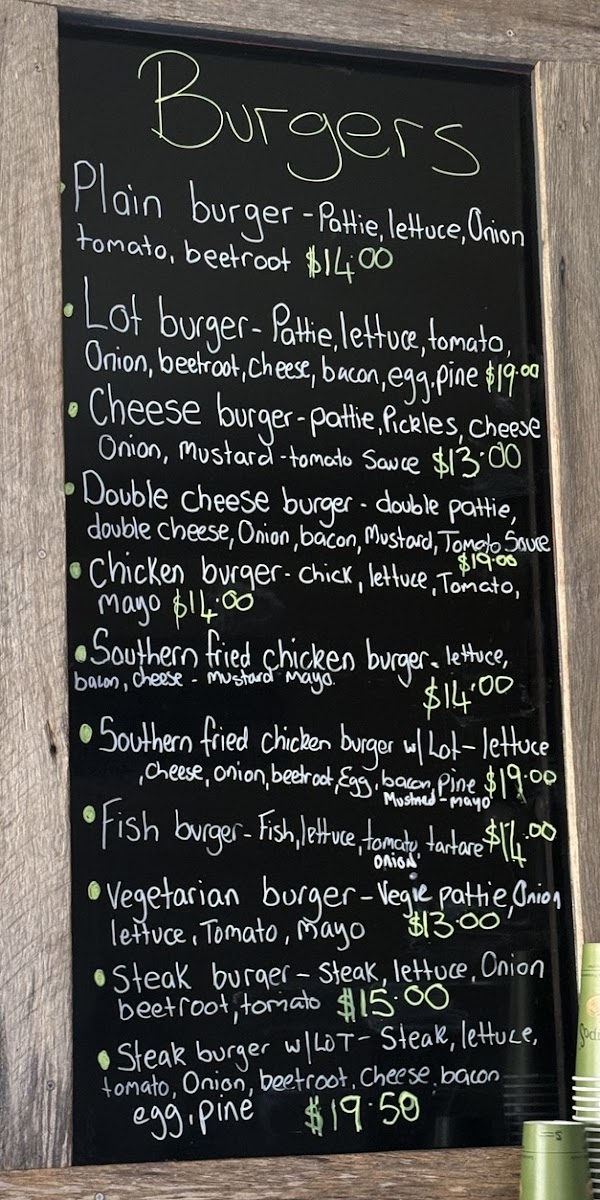 Burgers
Plain burger - Pattie, lettuce, Onion
tomato, beetroot $14.00
Lot burger - Pattie, lettuce, tomato,
Onion, beetroot, cheese, bacon, egg, pine $19.00
Cheese burger - pattie, Pickles, cheese
Onion, Mustard - tomato Sauce $13.00
Double cheese burger - double pattie,
double cheese, Onion, bacon, Mustard, Tomato Sauce
$19.00
Chicken burger - Chick, lettuce, Tomato,
Mayo $14.00
Southern fried chicken burger - lettuce,
bacon, cheese - Mustard Mayo.
$14.00
Southern fried chicken burger w/ Lot - lettuce
, Cheese, onion, beetroot, Egg, bacon, Pine $19.00
Mustard - mayo
Fish burger - Fish, lettuce, tomato, tartare $14.00
onion
Vegetarian burger - Vegie pattie, Onion
lettuce, Tomato, Mayo $13.00
Steak burger - Steak, lettuce, Onion
beetroot, tomato $15.00
Steak burger w/ LOT - Steak, lettuce,
tomato, Onion, beetroot, Cheese, bacon
egg, pine $19.50